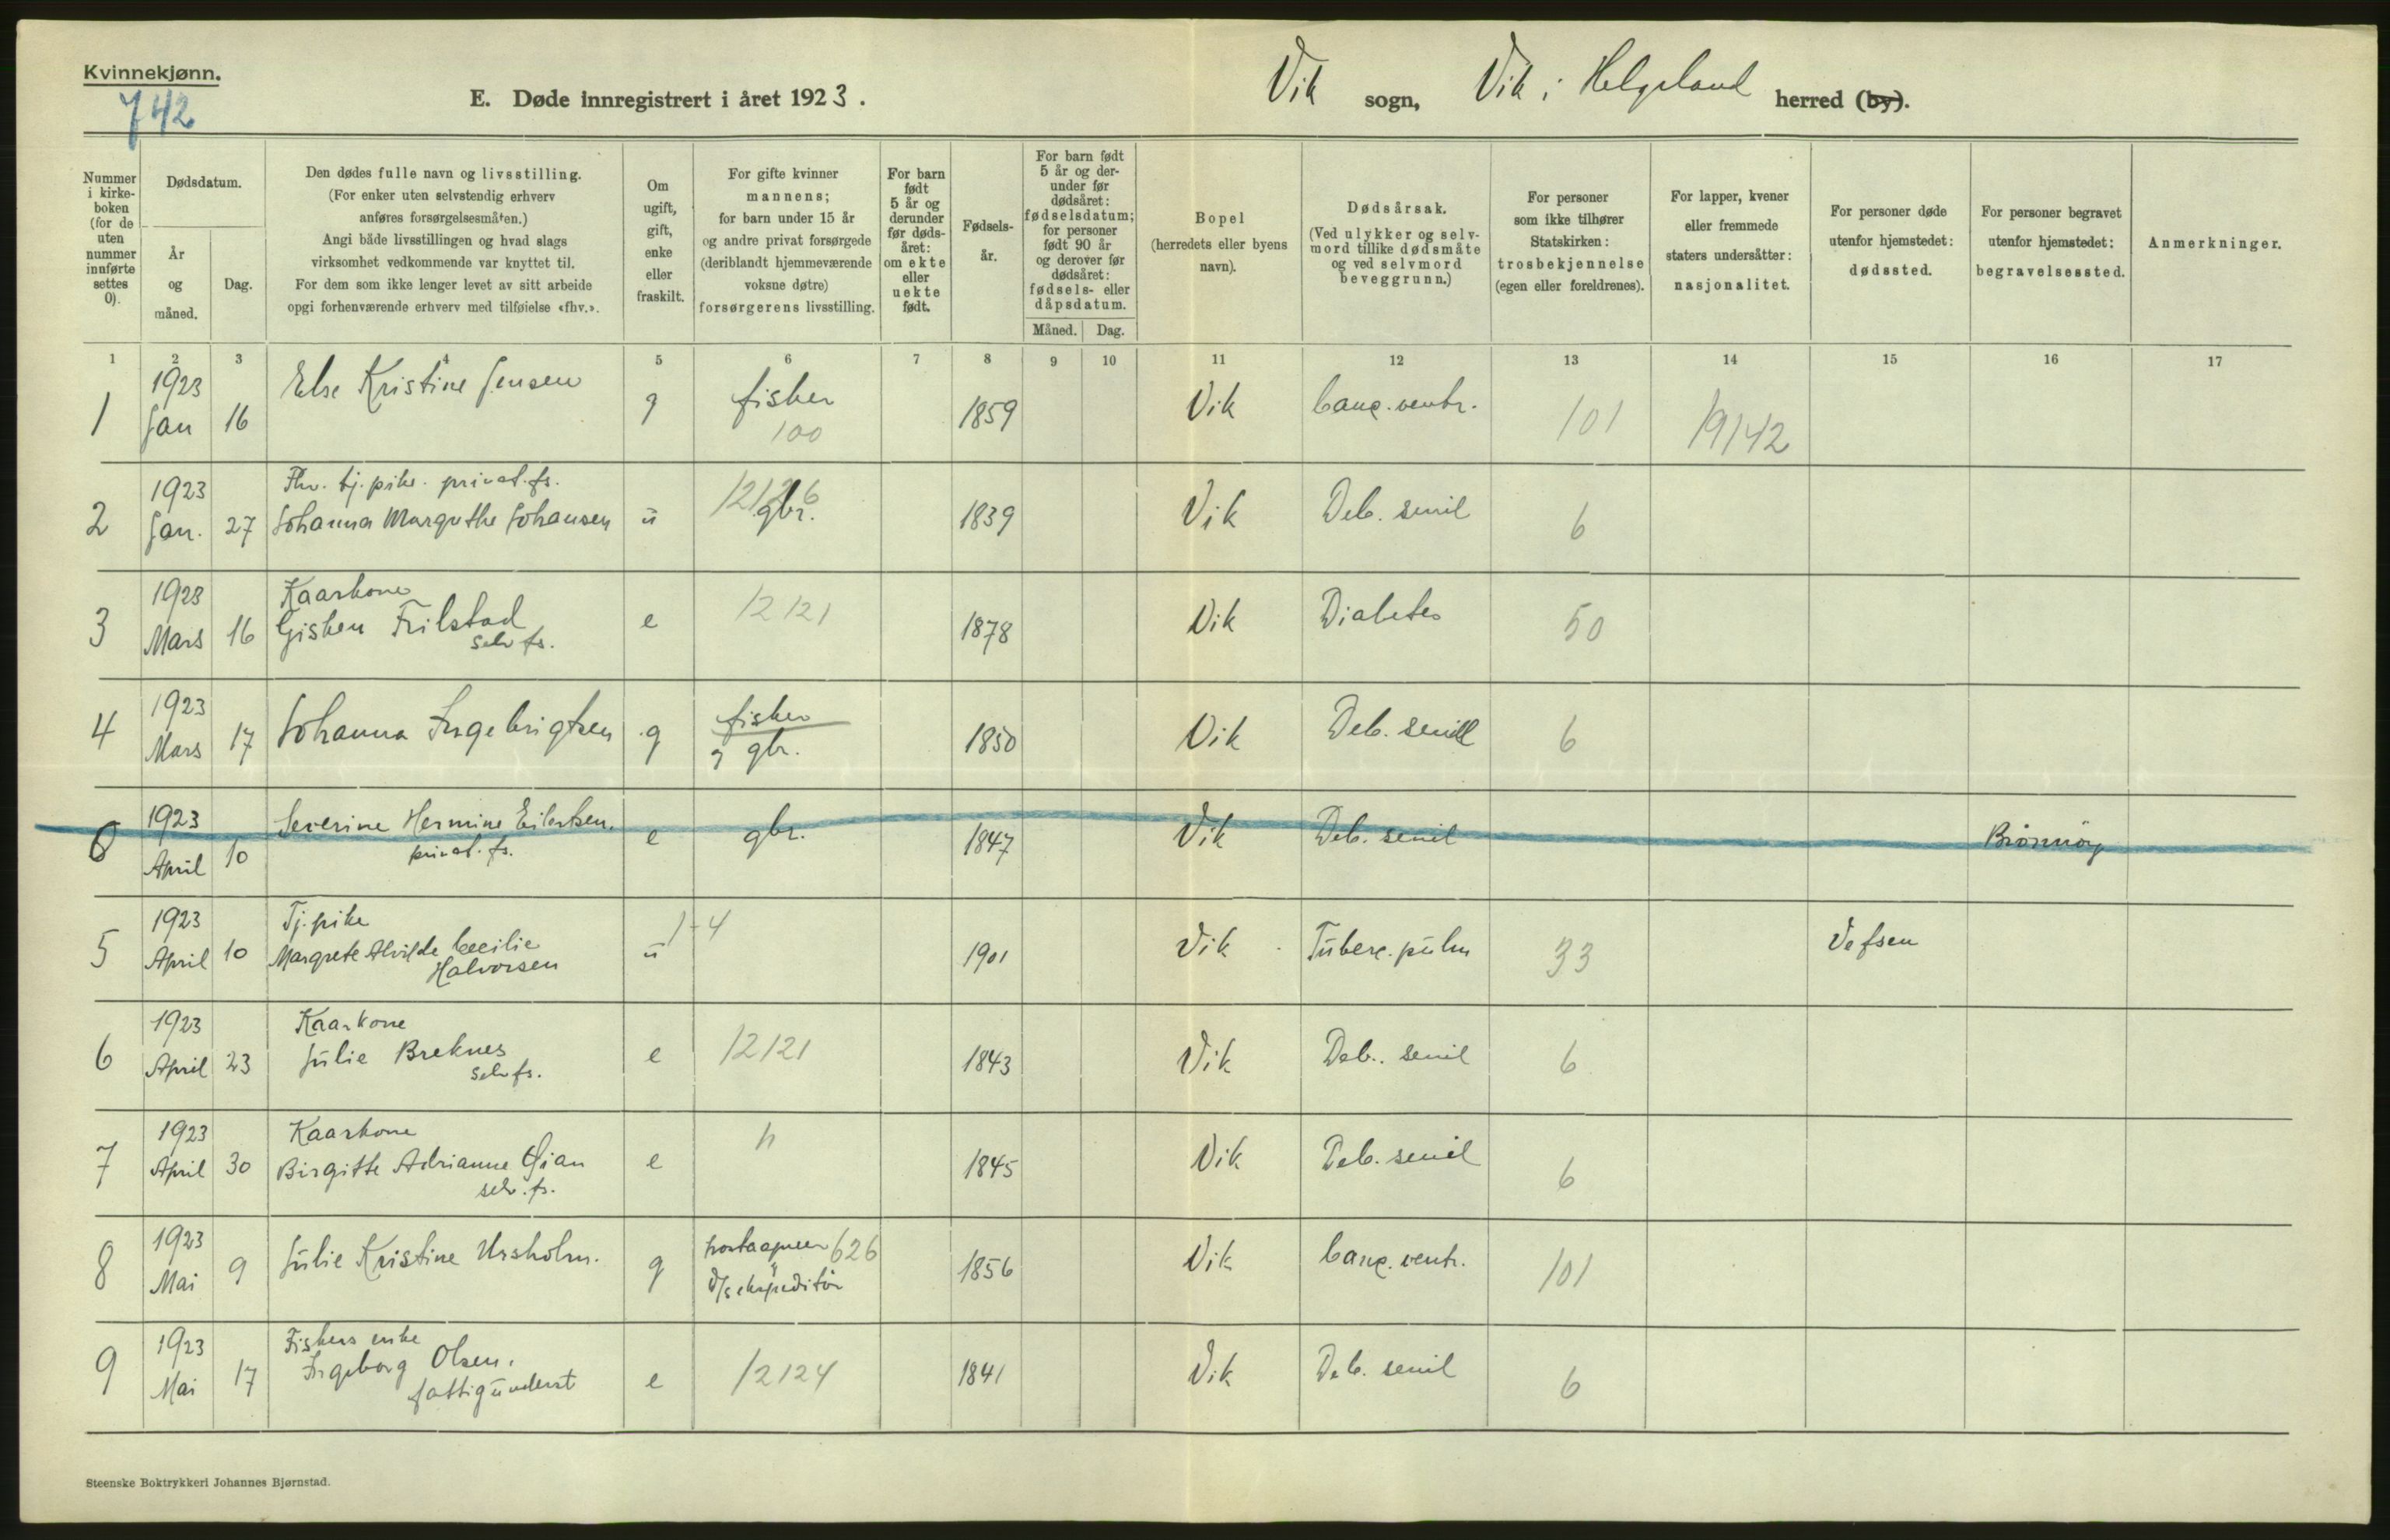 Kvinnekjønn.
742
E. Døde innregistrert i året 1923.
Vik sogn, Vik i Helgeland herred (by).
Nummer i kirke- boken (for de uten nummer innførte settes 0).
Dødsdatum.
År og måned.
Dag.
Den dødes fulle navn og livsstilling.
(For enker uten selvstendig erhverv
anføres forsørgelsesmåten.)
Angi både livsstillingen og hvad slags
virksomhet vedkommende var knyttet til.
For dem som ikke lenger levet av sitt arbeide
opgi forhenværende erhverv med tilføielse «fhv.».
Om ugift, gift, enke eller fraskilt.
For gifte kvinner
mannens;
for barn under 15 år
og andre privat forsørgede
(deriblandt hjemmeværende
voksne døtre)
forsørgerens livsstilling.
For barn født 5 år og derunder før døds- året: om ekte eller uekte født.
Fødsels- år.
For barn født 5 år og der- under før dødsåret: fødselsdatum; for personer født 90 år og derover før dødsåret: fødsels- eller dåpsdatum.
Måned. Dag.
Bopel
(herredets eller byens
navn).
Dødsårsak.
(Ved ulykker og selv-
mord tillike dødsmåte
og ved selvmord
beveggrunn.)
For personer
som ikke tilhører
Statskirken:
trosbekjennelse
(egen eller foreldrenes).
For lapper, kvener
eller fremmede
staters undersåtter:
nasjonalitet.
For personer døde
utenfor hjemstedet:
dødssted.
For personer begravet
utenfor hjemstedet:
begravelsessted.
Anmerkninger.
1 2 3 4 5 6 7 8 9 10 11 12 13 14 15 16 17
1 1923 Jan 16 Else Kristine Jensen g fisker 100 1859 Vik Canc. ventr. 101 19142
2 1923 Jan. 27 Fhv. tj. pike. privat. fs.
Johanna Margrethe Johansen u 12126 gbr. 1839 Vik Deb. senil 6
3 1923 Mars 16 Kaarkone
Gisken Trilstad
selv fs. e 12121 1878 Vik Diabetes 50
4 1923 Mars 17 Johanna Ingebrigtsen g fisker
og gbr. 1850 Vik Deb. senill 6
0 1923 April 10 Severine Hermine Eilertsen.
privat. fs. e gbr. 1847 Vik Deb. senil Brönnöy
5 1923 April 10 Tj. pike
Margrete Alvilde Cecilie
Halvorsen u 1-4 1901 Vik Tuberc. pulm 33 Vefsen
6 1923 April 23 Kaarkone
Julie Breknes
selv fs. e 12121 1843 Vik Deb. senil 6
7 1923 April 30 Kaarkone
Birgitte Adrianne
selv. fs. e " 1845 Vik Deb. senil 6
8 1923 Mai 9 Julie Kristine Ursholm. g 626
d/s ekspeditör 1856 Vik Canc. ventr. 101
9 1923 Mai 17 Fiskers enke
Ingeborg Olsen.
fattigunderst e 12124 1841 Vik Deb. senil 6
Steenske Boktrykkeri Johannes Bjørnstad.